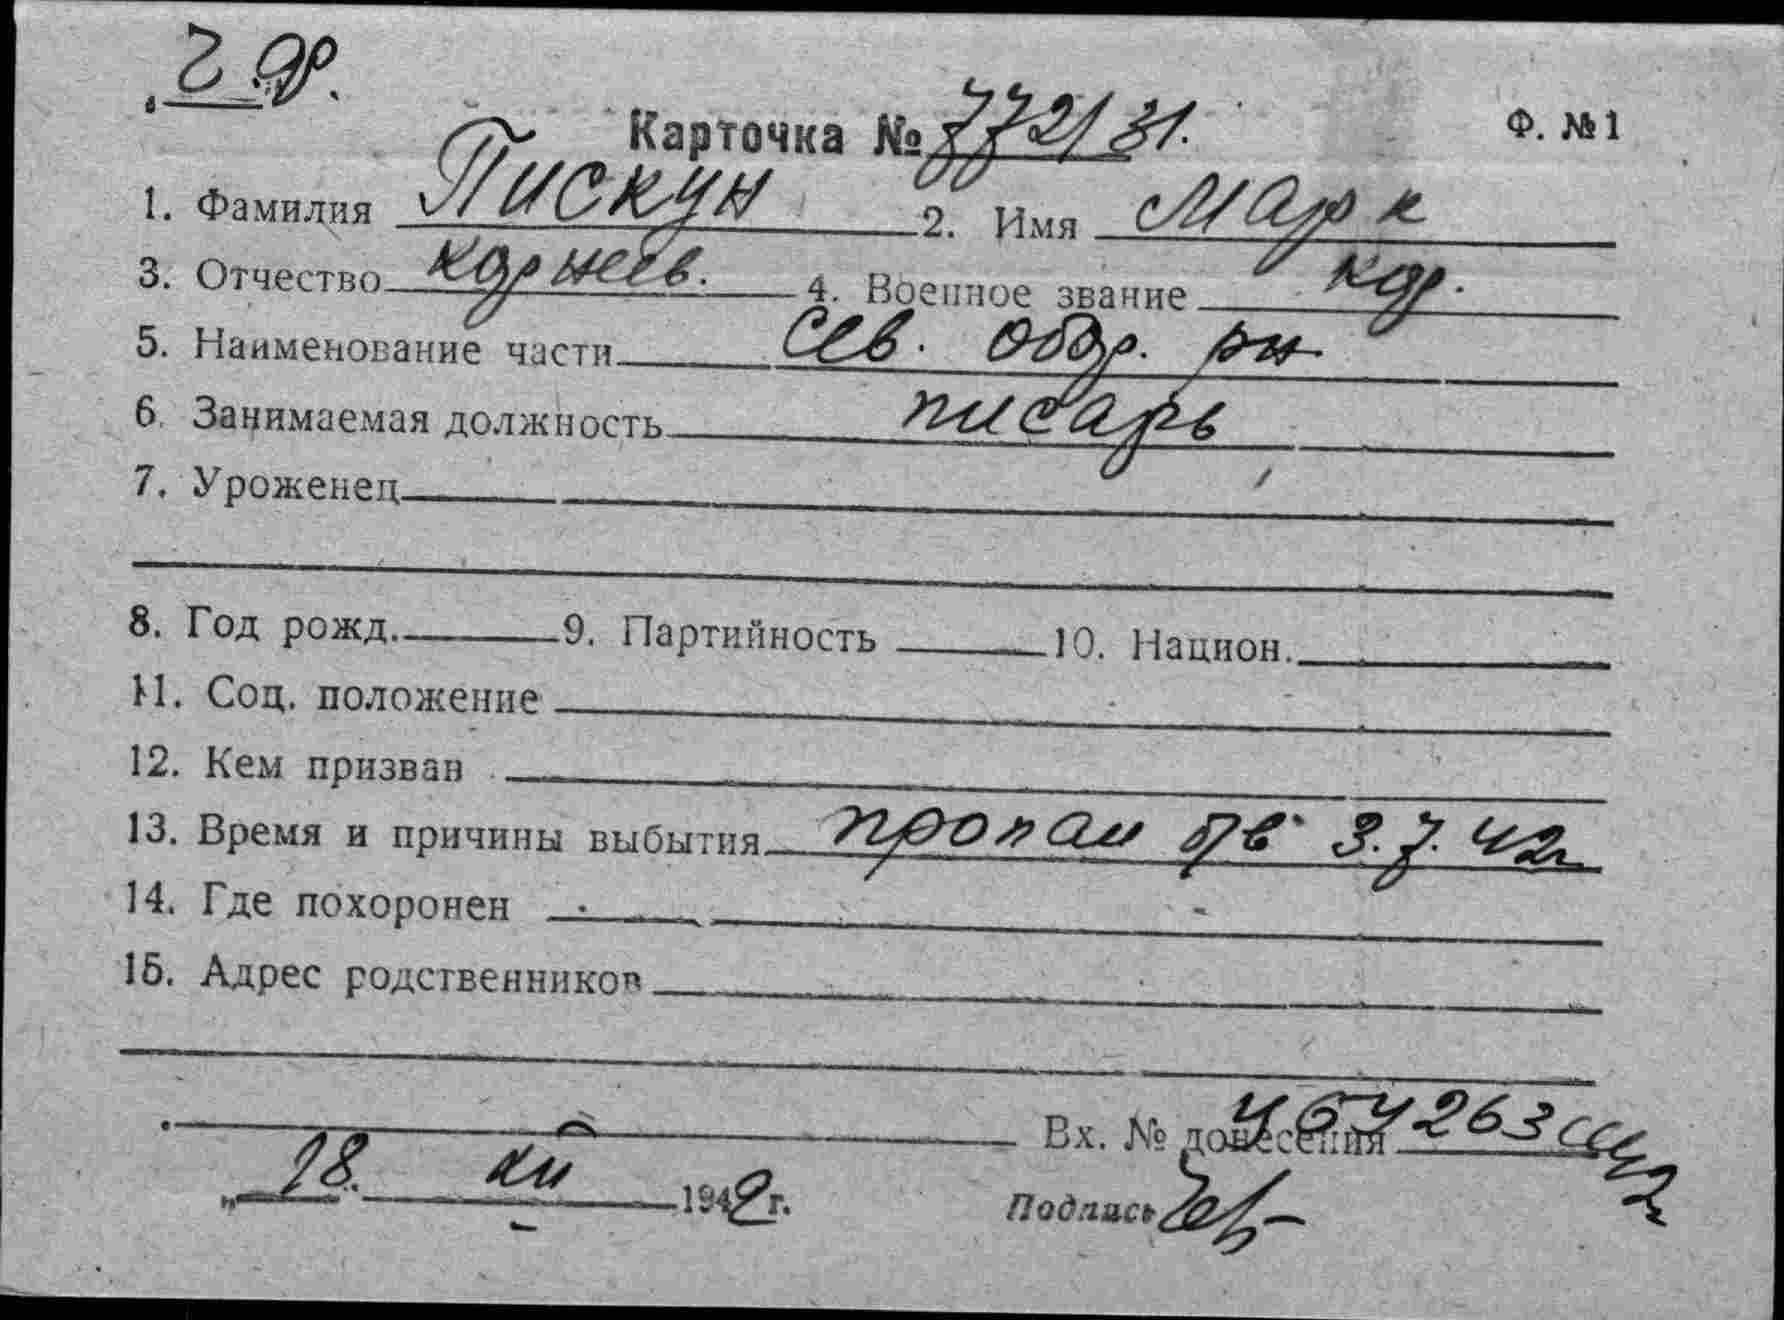 Карточка № 772/31. Ф. №1
1. Фамилия Пискун 2. Имя Марк
3. Отчество 4. Военное звание кр.
5. Наименование части Сев. обор. рн
6. Занимаемая должность писарь
7. Уроженец
8. Год рожд. 9. Партийность 10. Национ.
11. Соц. положение
12. Кем призван
13. Время и причины выбытия пропал б/в 3.7.42г
14. Где похоронен
15. Адрес родственников
Вх. № донесения
„ 18. XII 1942г. Подпись